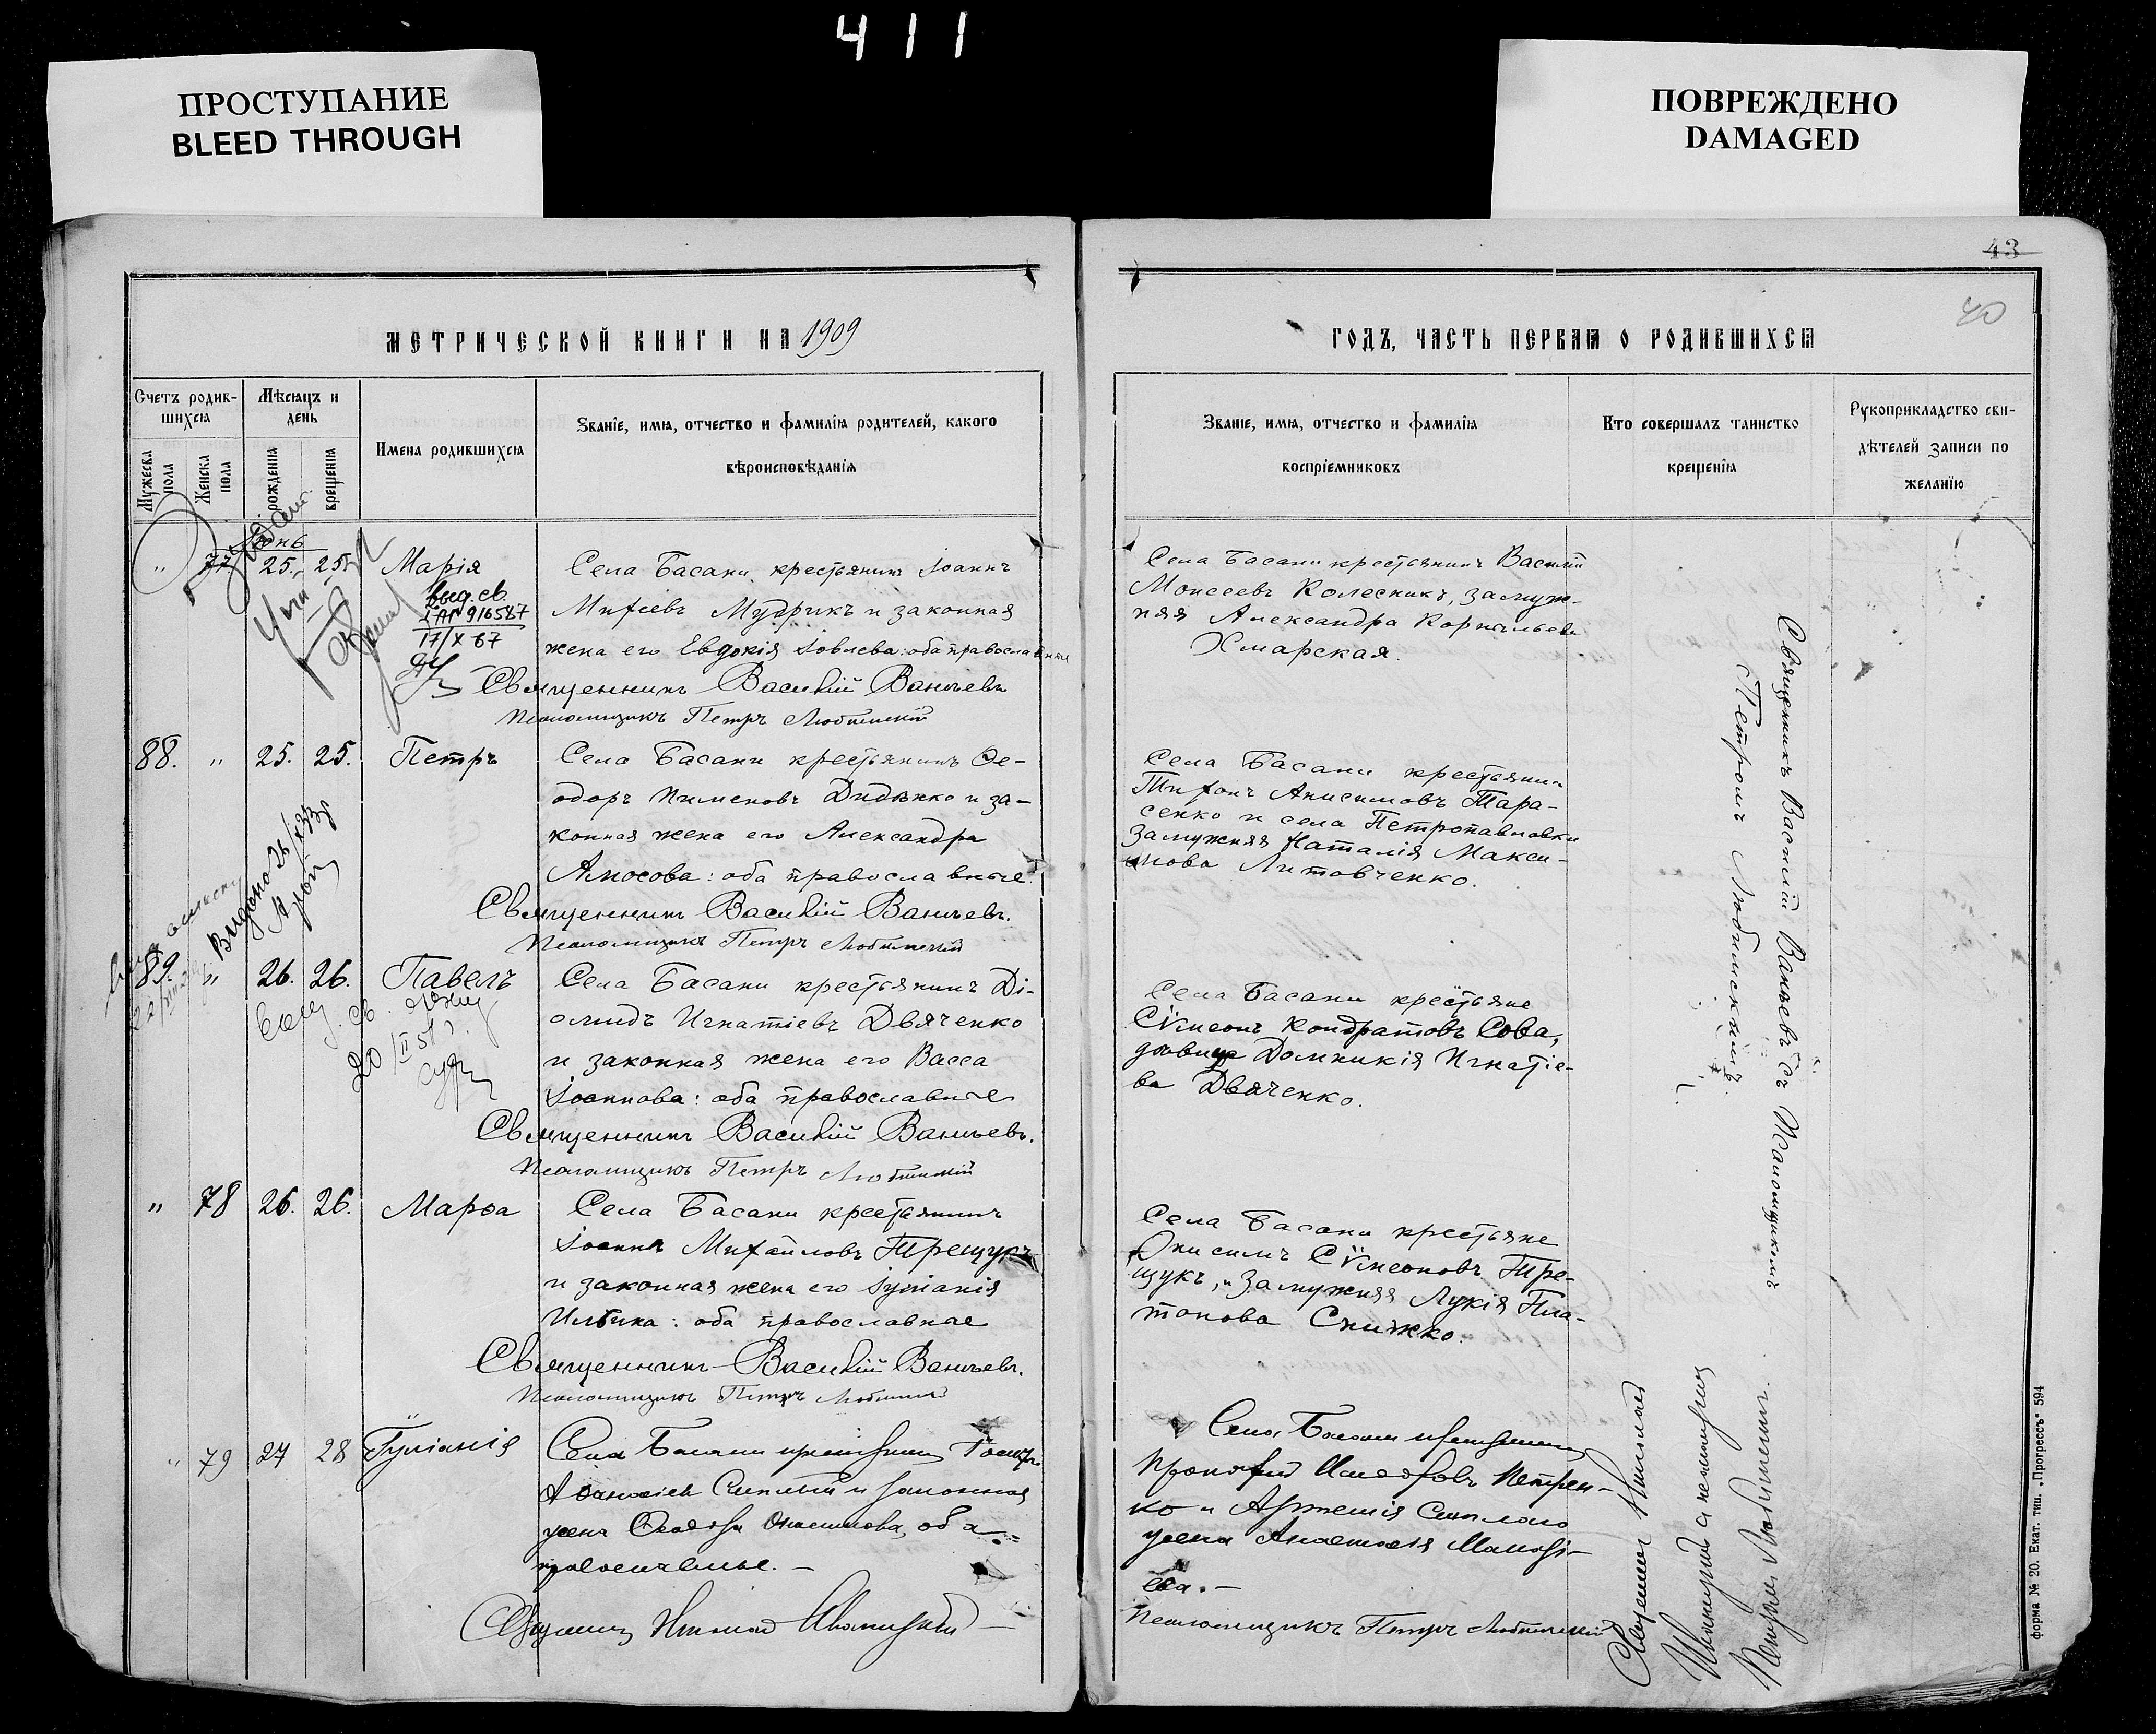 411
ПРОСТУПАНИЕ
BLEED THROUGH
ПОВРЕЖДЕНО
DAMAGED
43
40
МЕТРИЧЕСКОЙ КНИГИ НА 1909
ГОДЪ, ЧАСТЬ ПЕРВАЯ О РОДИВШИХСЯ
Счетъ родив-
шихся
Мужеска
пола
Женска
пола
Мѣсяцъ и
день
рожденія
крещенія
Имена родившихся
Званіе, имя, отчество и фамилія родителей, какого
вѣроисповѣданія
Званіе, имя, отчество и фамилія
воспріемниковъ
Кто совершалъ таинство
крещенія
Рукоприкладство сви-
дѣтелей записи по
желанію
" 77 25. 25. Марія
выд. св.
916587
17/X 67
Села Басани крестьянинъ Іоаннъ
Михеевъ Мудрикъ и законная
жена его Евдокія Іовлева: оба православные
Священникъ Василій Ваньевъ
Псаломщикъ Петръ Любимскій
Села Басани крестьянинъ Василій
Моисеевъ Колесникъ, замуж-
няя Александра Корнильева
Хмарская.
88. " 25. 25. Петръ
Села Басани крестьянинъ Ѳе-
одоръ Пименовъ Дидѣнко и за-
конная жена его Александра
Амосова: оба православные.
Священникъ Василій Ваньевъ.
Псаломщикъ Петръ Любимскій
Села Басани крестьянинъ
Тихонъ Анисимовъ Тара-
сенко и села Петропавловки
замужняя Наталія Макси-
мова Литовченко.
Выдано 26/
89. " 26. 26. Павелъ
20/II 51
Села Басани крестьянинъ Ді-
омидъ Игнатіевъ Двяченко
и законная жена его Васса
Іоаннова: оба православные
Священникъ Василій Ваньевъ.
Псаломщикъ Петръ Любимскій
Села Басани крестьяне
Сѵмеонъ Кондратовъ Сова,
дѣвица Домникія Игнатіе-
ва Двяченко.
" 78 26. 26. Марѳа
Села Басани крестьянинъ
Іоаннъ Михайловъ Трещукъ
и законная жена его Іуліанія
Ильина: оба православные
Священникъ Василій Ваньевъ.
Псаломщикъ Петръ Любимскій
Села Басани крестьяне
Онисимъ Сѵмеоновъ Тре-
щукъ, и замужняя Лукія Пла-
тонова Снижко.
" 79 27 28 Іуліанія
Села Басани крестьянинъ
и законная
жена Ѳеодора Онисимова, оба
православные. –
Священникъ Николай
Села Басани крестьянинъ
Прокофій Петрен-
ко и Артемія
жена Анастасія
ева. –
Псаломщикъ Петръ Любимскій
Священникъ Василій Ваньевъ съ Псаломщикомъ
Петромъ Любимскимъ.
Священникъ Николай
с псаломщикомъ
Петромъ Любимскимъ
форма № 20. Екат. тип. „Прогрессъ" 594